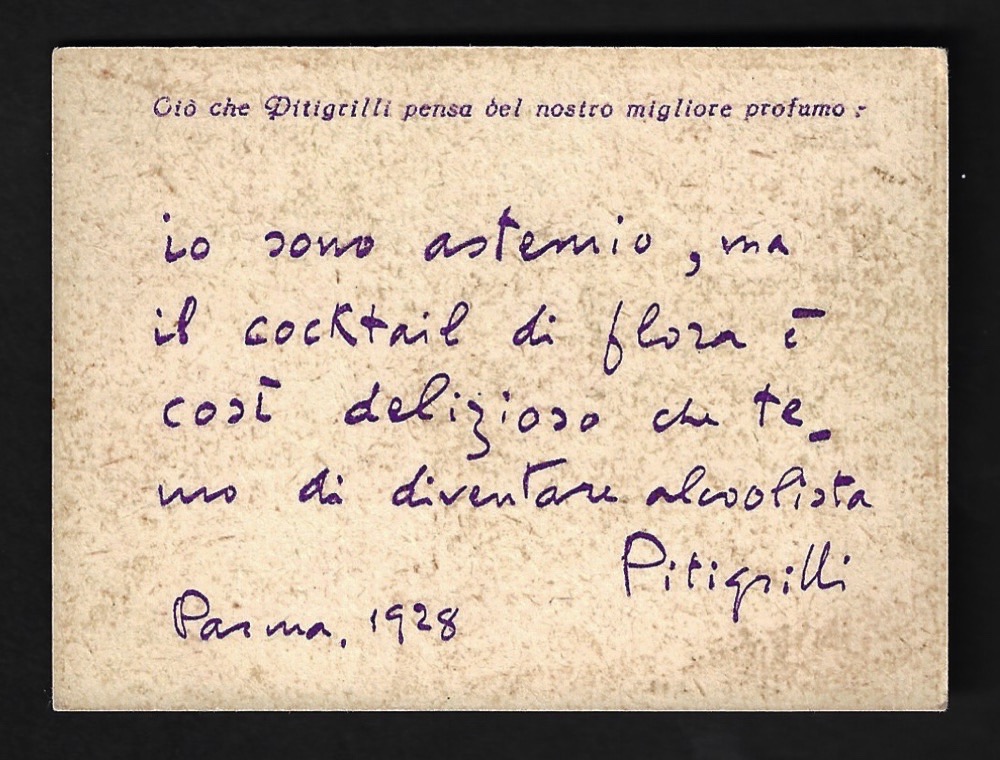 Ciò che Pitigrilli pensa del nostro migliore profumo :
io sono astemio, ma
il cocktail di flora è
così delizioso che te-
mo di diventare alcoolista
Pitigrilli
Parma, 1928